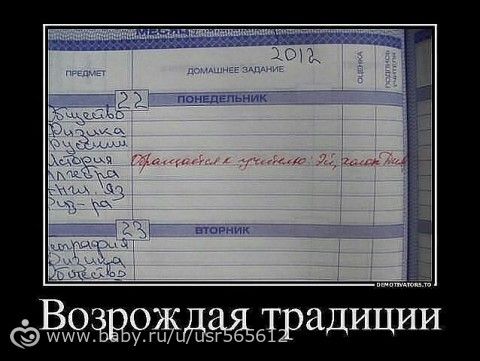 2012
ПРЕДМЕТ ДОМАШНЕЕ ЗАДАНИЕ ОЦЕНКА ПОДПИСЬ УЧИТЕЛЯ
22 ПОНЕДЕЛЬНИК
Общество
Физика
Русский
История Обращается к учителю: Эй, холоп
Алгебра
Англ. яз
Физ-ра
23 ВТОРНИК
География
Физика
Общество
DEMOTIVATORS.TO
Возрождая традиции
www.baby.ru/u/usr565612